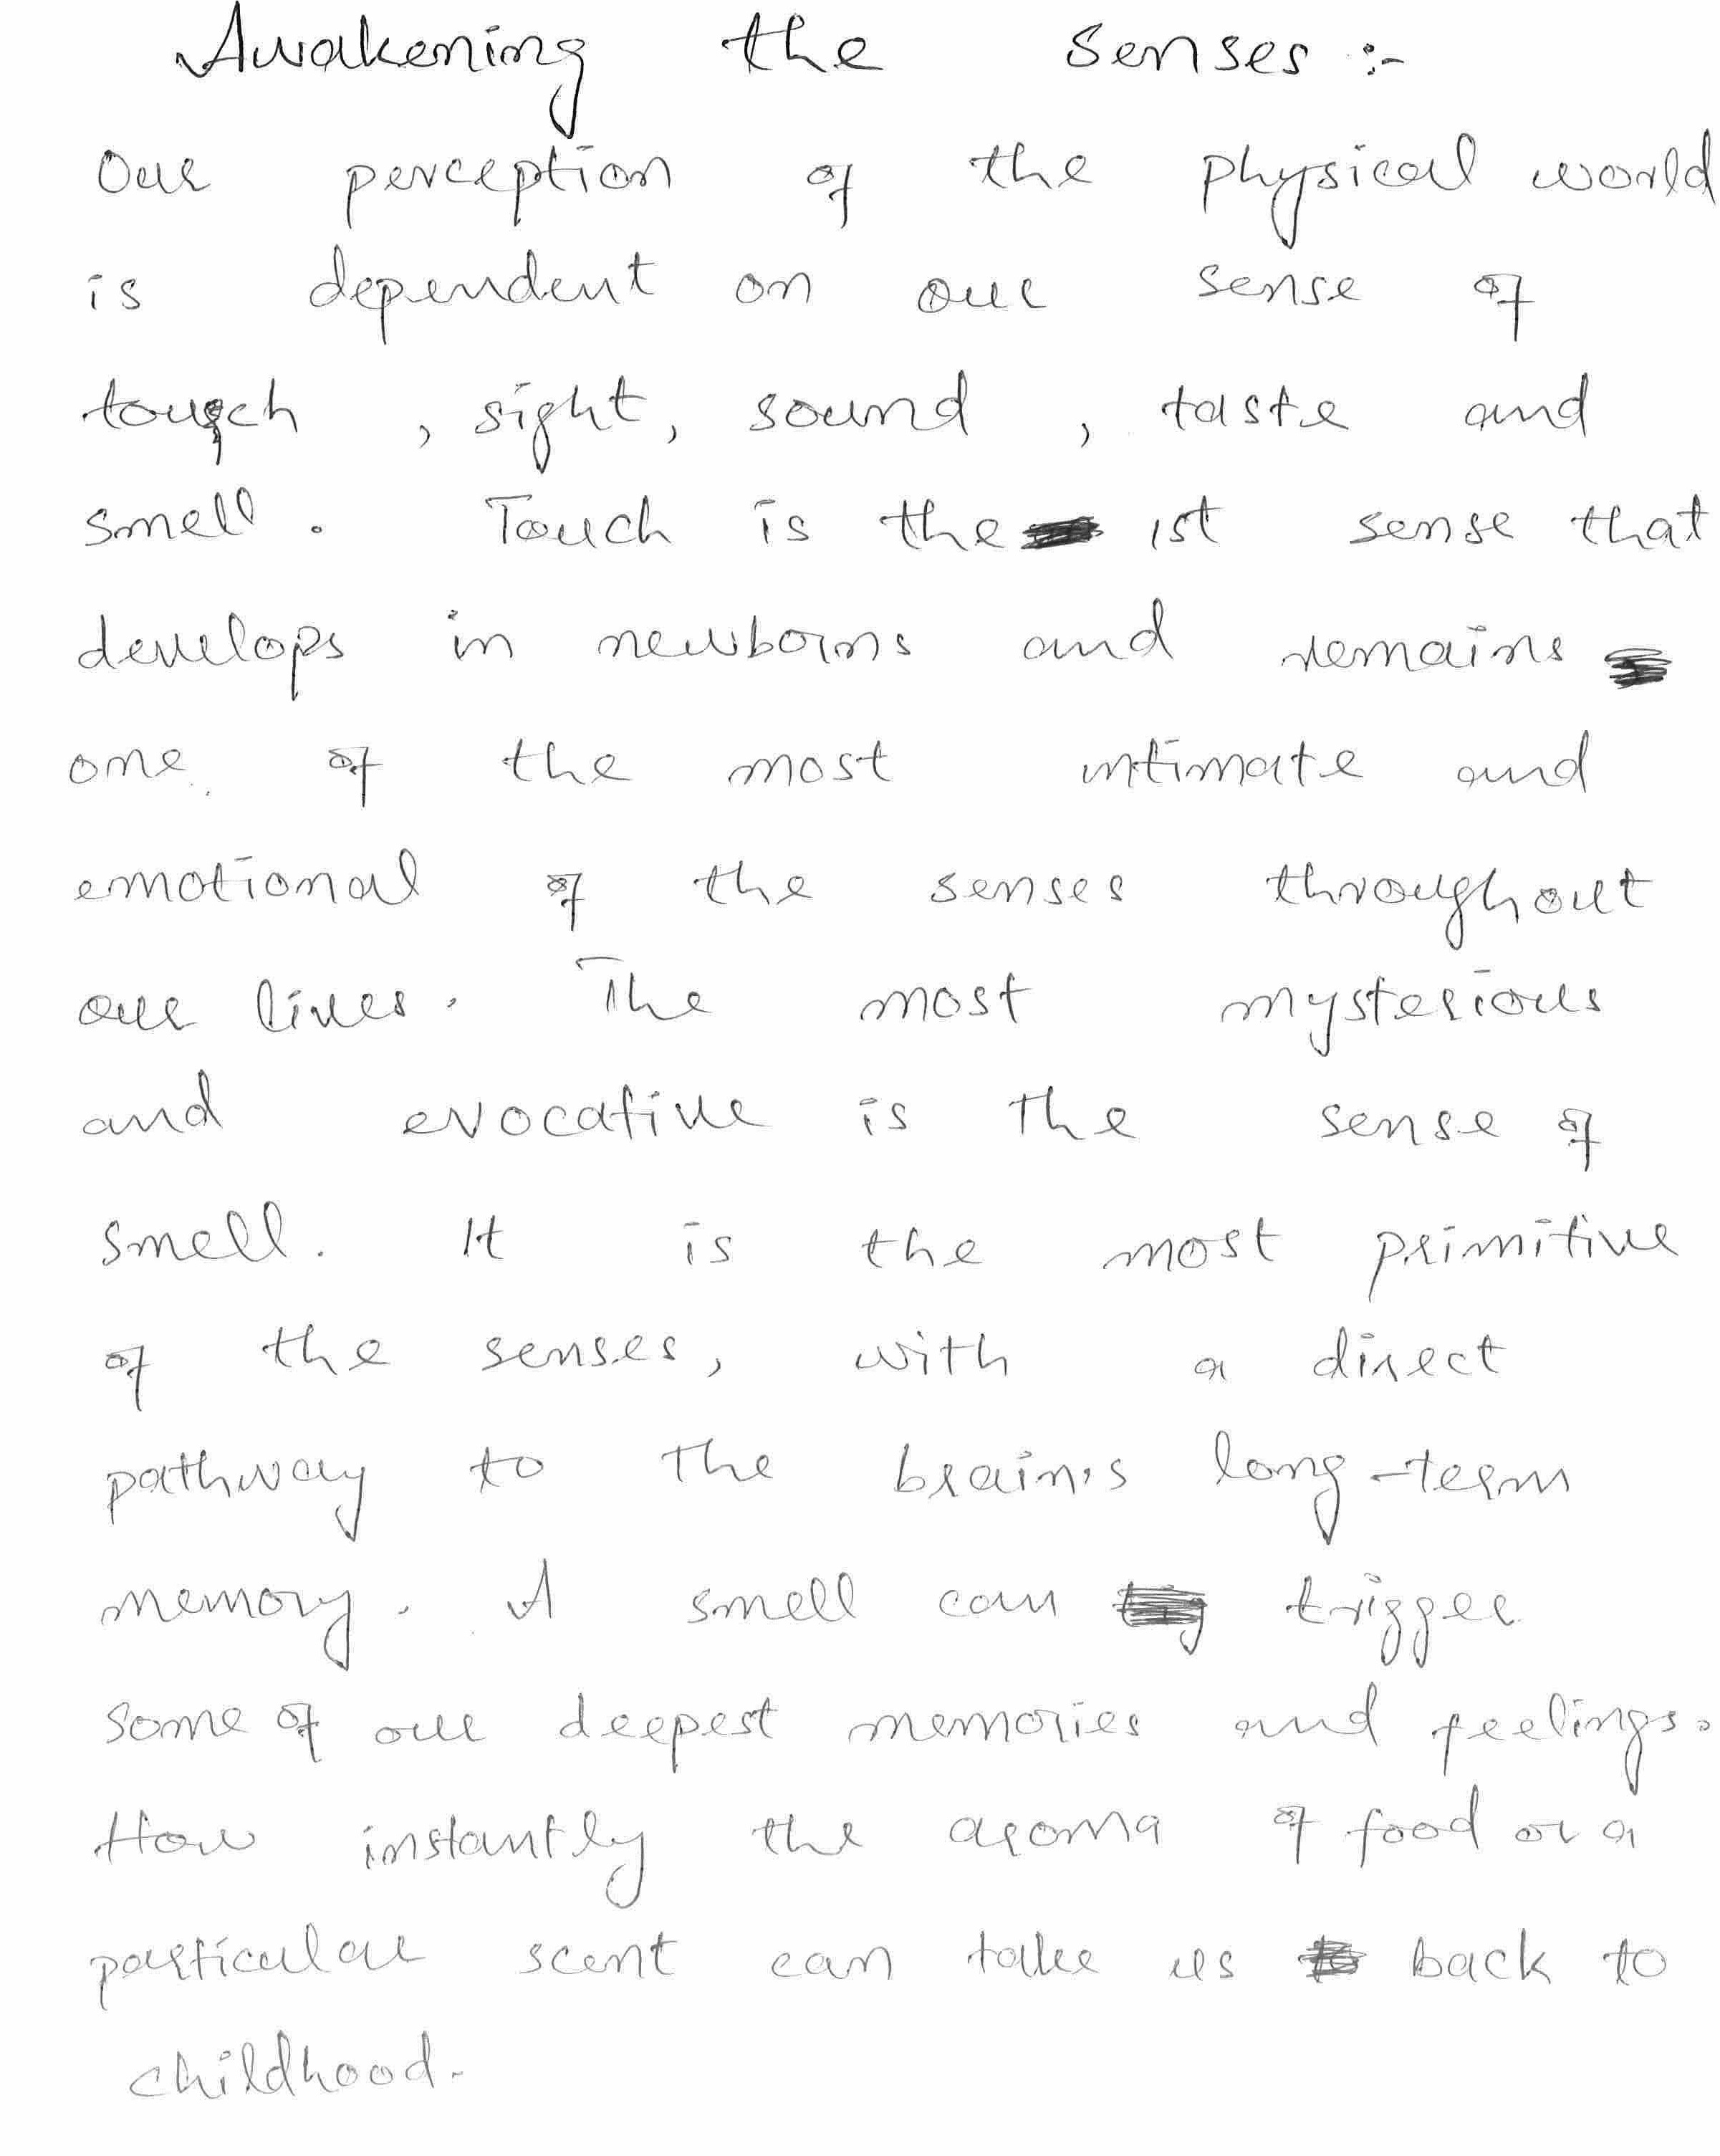 Awakening the senses :-
Our perception of the physical world
is dependent on our sense of
touch , sight, sound , taste and
smell . Touch is the 1st sense that
develops in newborns and remains
one of the most intimate and
emotional of the senses throughout
our lives. The most mysterious
and evocative is the sense of
smell. It is the most primitive
of the senses, with a direct
pathway to the brain's long-term
memory. A smell can trigger
some of our deepest memories and feelings.
How instantly the aroma of food or a
particular scent can take us back to
childhood.